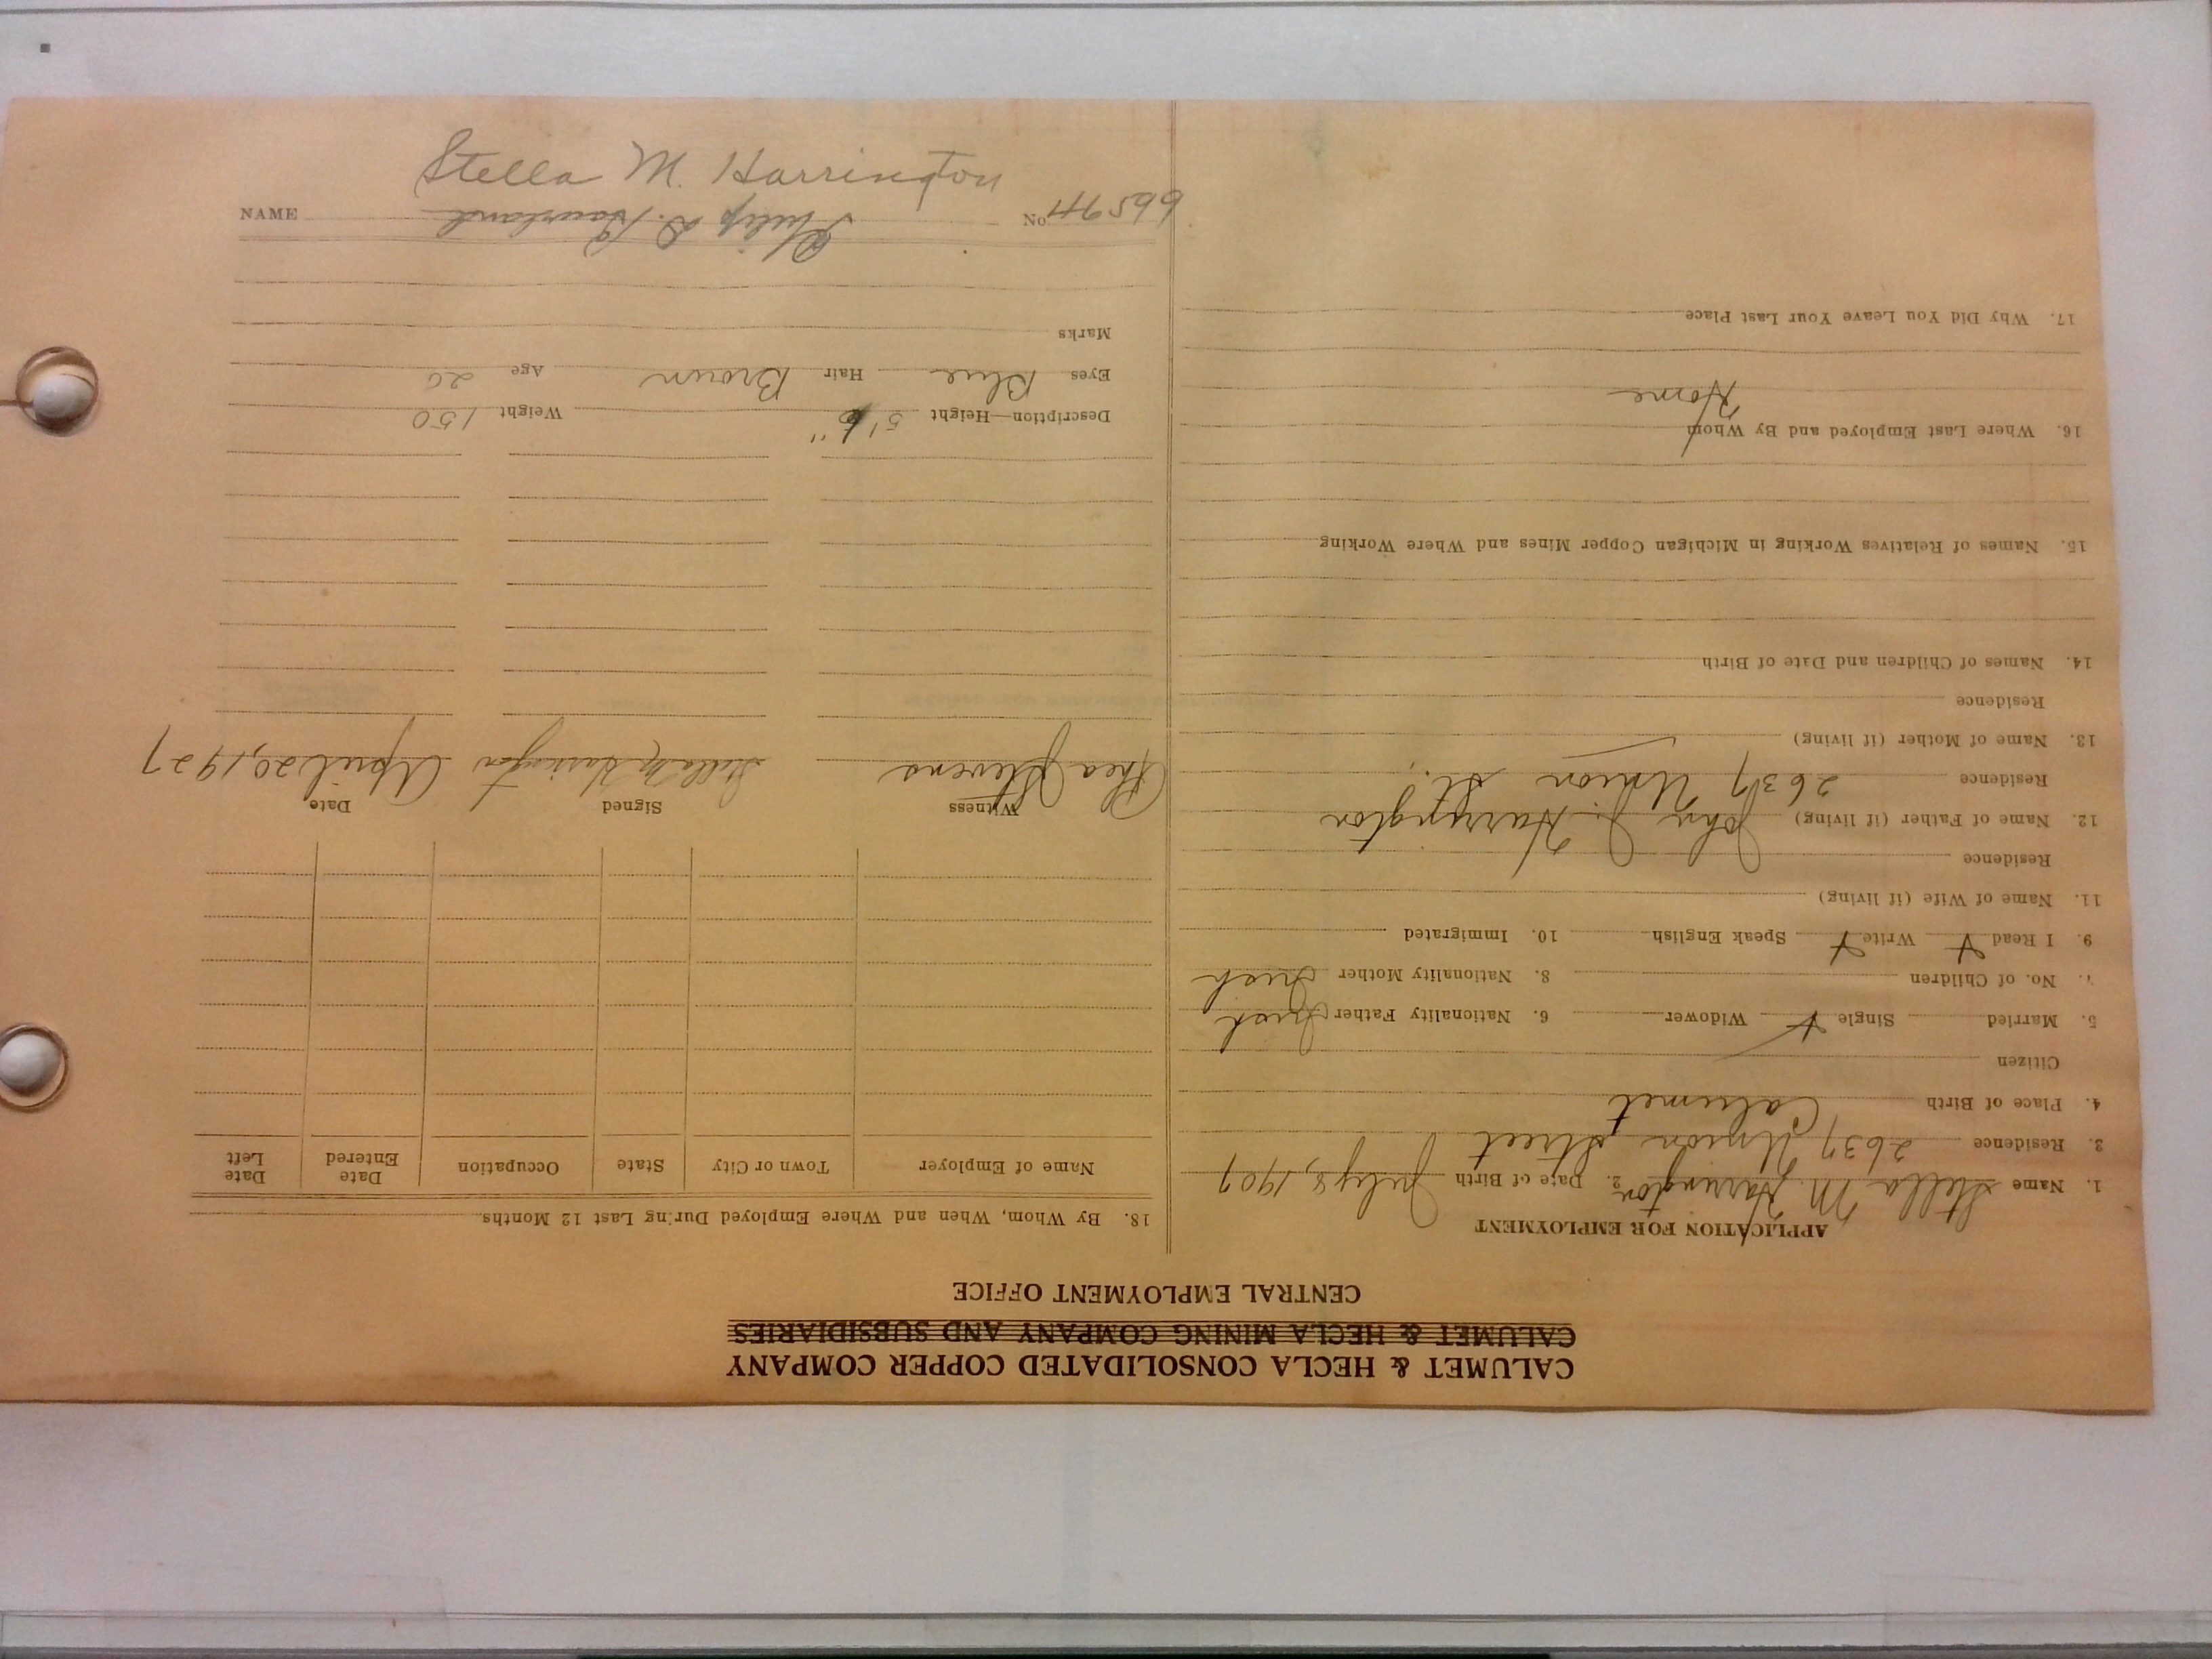 CALUMET & HECLA CONSOLIDATED COPPER COMPANY
CALUMET & HECLA MINING COMPANY AND SUBSIDIARIES
CENTRAL EMPLOYMENT OFFICE
APPLICATION FOR EMPLOYMENT
1. Name Stella M. Harrington 2. Date of Birth July 8, 1907
3. Residence 2637 Union Street
4. Place of Birth Calumet
Citizen
5. Married Single x Widower 6. Nationality Father Irish
7. No. of Children 8. Nationality Mother Irish
9. I Read x Write x Speak English 10. Immigrated
11. Name of Wife (if living)
Residence
12. Name of Father (if living) John J. Harrington
Residence 2637 Union St.
13. Name of Mother (if living)
Residence
14. Names of Children and Date of Birth
15. Names of Relatives Working in Michigan Copper Mines and Where Working
16. Where Last Employed and By Whom
Home
17. Why Did You Leave Your Last Place
18. By Whom, When and Where Employed During Last 12 Months
Name of Employer Town or City State Occupation Date Entered Date Left
Witness Signed Date
Rhea Stevens Stella M Harrington April 20, 1927
Description—Height 5' 6" Weight 150
Eyes Blue Hair Brown Age 20
Marks
Philip
NAME No
Stella M. Harrington